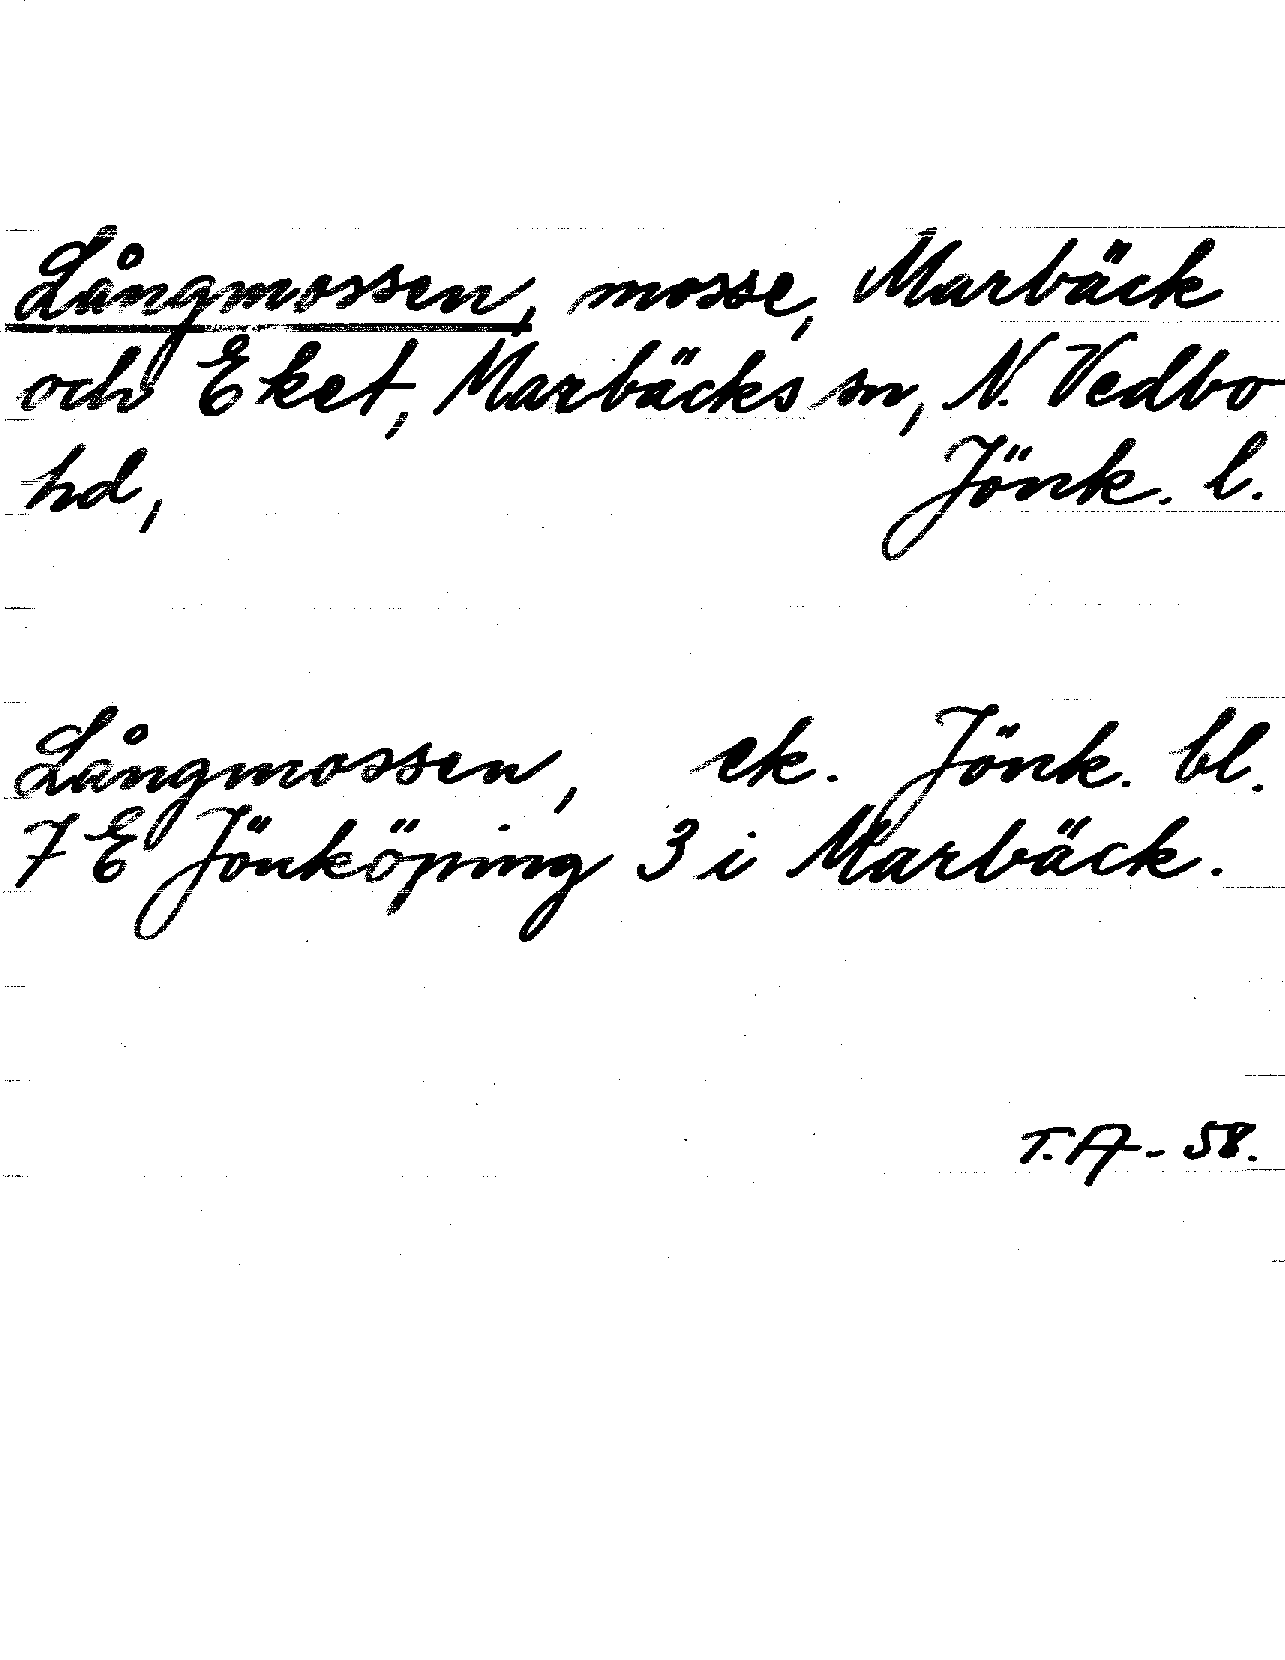 Långmossen, mosse, Marbäck
och Eket, Marbäcks sn, N. Vedbo
hd, Jönk. l.
Långmossen, ek. Jönk. bl.
7 E Jönköping 3 i Marbäck.
T.A-58.